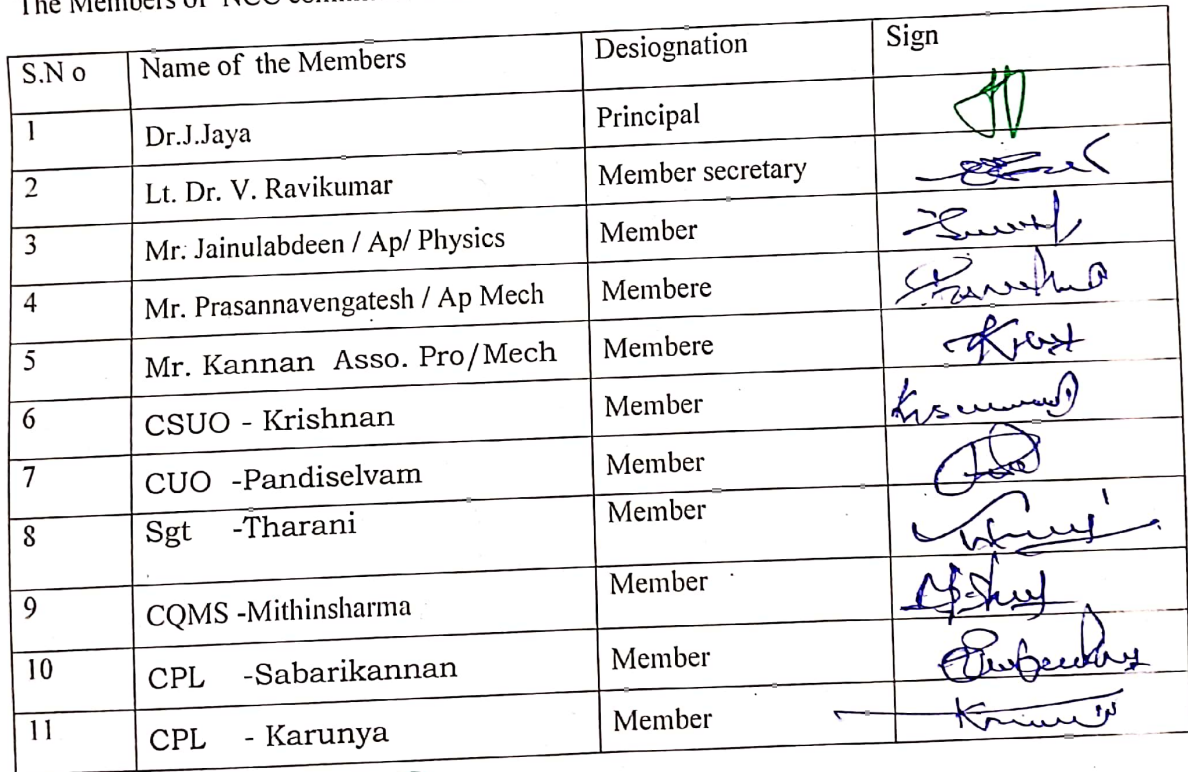 The Members of NCC
S.N o Name of the Members Desiognation Sign
1 Dr.J.Jaya Principal
2 Lt. Dr. V. Ravikumar Member secretary
3 Mr. Jainulabdeen / Ap/ Physics Member
4 Mr. Prasannavengatesh / Ap Mech Membere
5 Mr. Kannan Asso. Pro/Mech Membere
6 CSUO - Krishnan Member
7 CUO -Pandiselvam Member
8 Sgt -Tharani Member
9 CQMS -Mithinsharma Member
10 CPL -Sabarikannan Member
11 CPL - Karunya Member